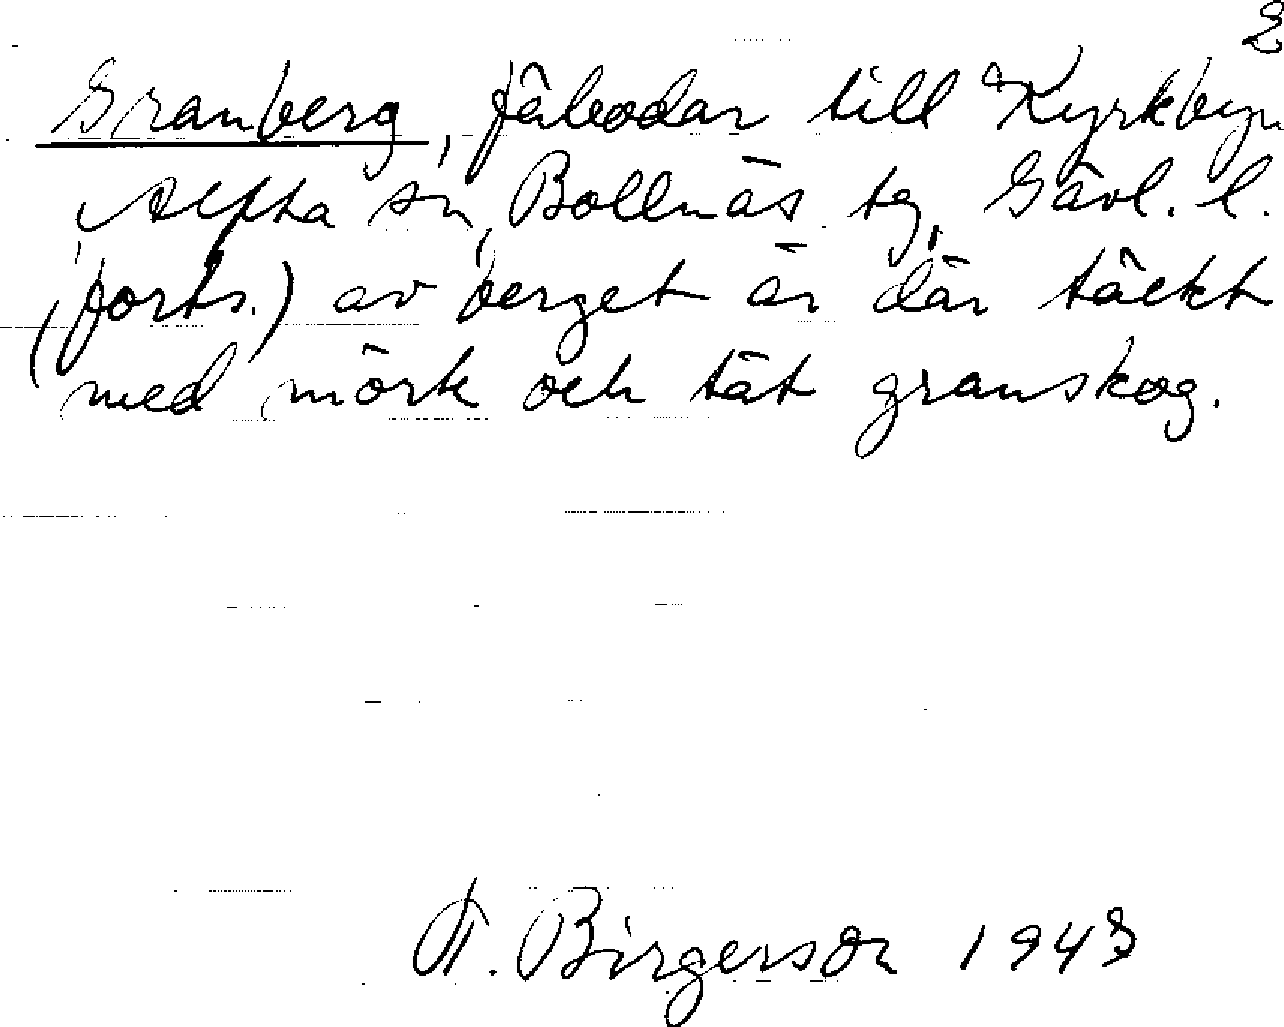 2
Granberg, fäbodar till Kyrkbyn
Alfta sn, Bollnäs tg, Gävl. l.
(forts.) av berget är där täckt
med mörk och tät granskog.
Birgerson 1943